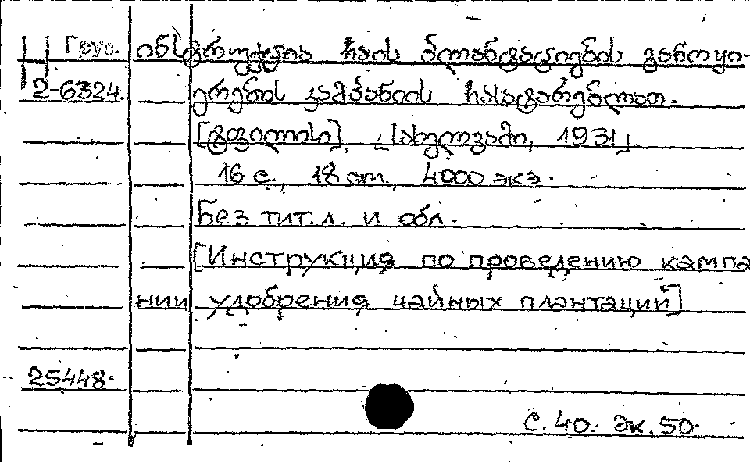 Груз. ინსტრუქცია ჩაის პლანტაციების განოყი-
2-6324. ერების კამპანიის ჩასატარებლათ.
[ტფილისი], [სახელგამი, 1931]
16 с., 18 см., 4000 экз.
Без тит. л. и обл.
[Инструкция по проведению кампа
нии удобрения чайных плантаций]
25448.
С. 40. Эк. 50.